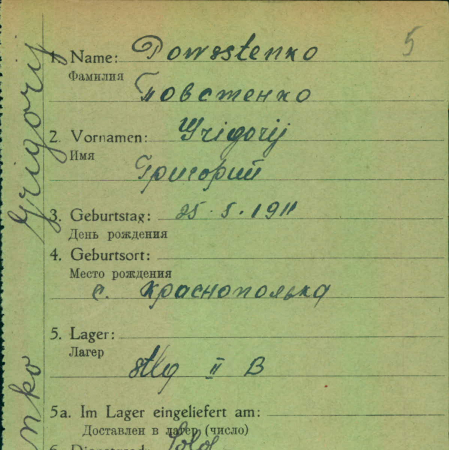 5
1. Name: Powstenko
Фамилия
Повстенко
2. Vornamen: Grigorij
Имя
Григорий
3. Geburtstag: 25.5.1911
День рождения
4. Geburtsort:
Место рождения
с. Краснополька
5. Lager:
Лагер
Stlg II B
5a. Im Lager eingeliefert am:
Доставлен в лагер (число)
Grigorij